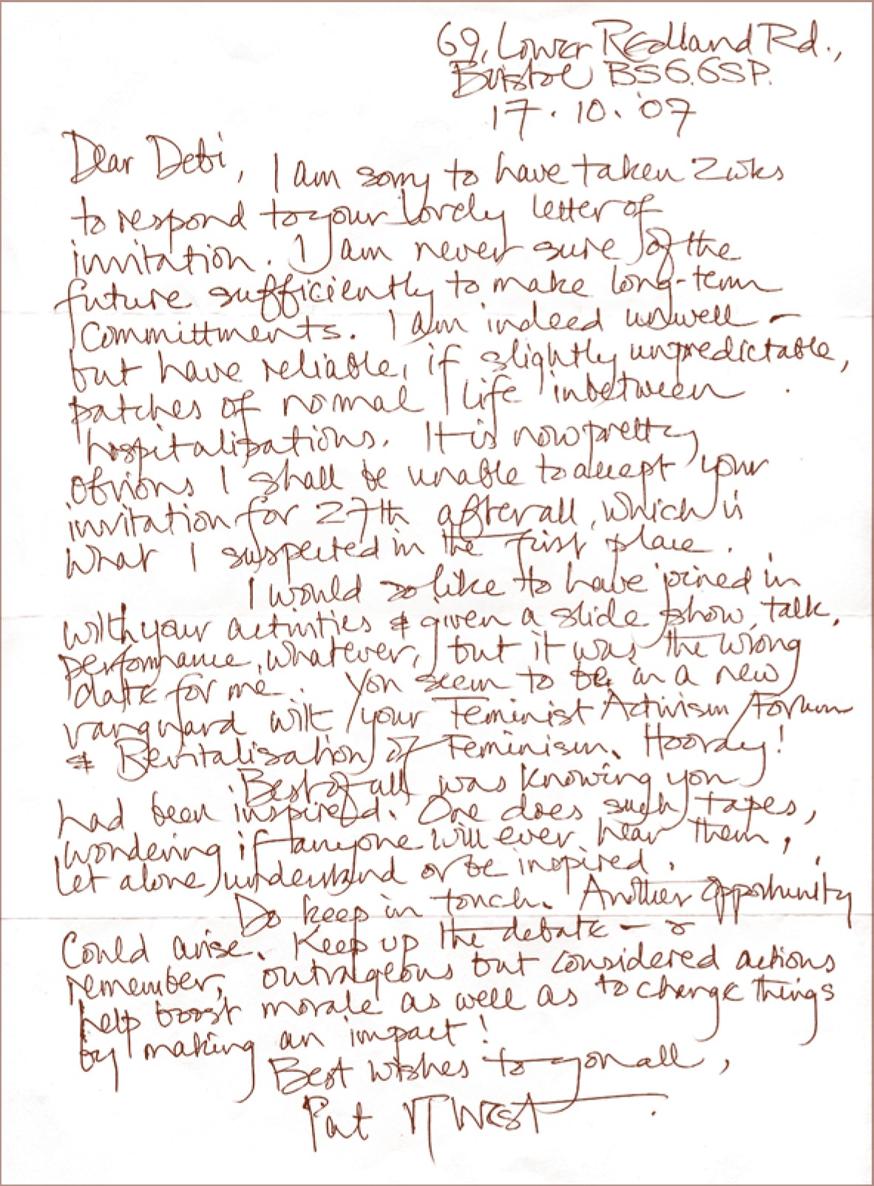 69, Lower Redland Rd.,
Bristol BS6.6SP.
17.10.'07
Dear Debi,
I am sorry to have taken 2wks
to respond to your lovely letter of
invitation. I am never sure of the
future sufficiently to make long-term
committments. I am indeed unwell –
but have reliable, if slightly unpredictable,
patches of normal life inbetween
hospitalisations. It is now pretty
obvious I shall be unable to accept your
invitation for 27th afterall, which is
what I suspected in the first place.
I would so like to have joined in
with your activities & given a slide show, talk,
performance, whatever, but it was the wrong
date for me. You seem to be in a new
vanguard with your Feminist Activism Forum
& Revitalisation of Feminism. Hooray!
Best of all was knowing you
had been inspired. One does such tapes,
wondering if anyone will ever hear them,
let alone understand or be inspired.
Do keep in touch. Another opportunity
could arise. Keep up the debate – &
remember, outrageous but considered actions
help boost morale as well as to change things
by making an impact!
Best wishes to you all,
Pat VT West